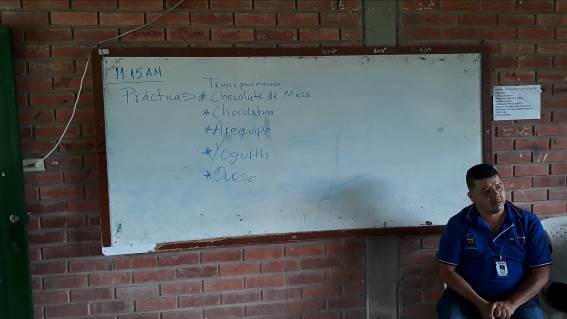 11:15 AM
Transformación
Práctica => * Chocolate de Mesa
* Chocolatina
* Arequipe
* Yogurth
* Queso